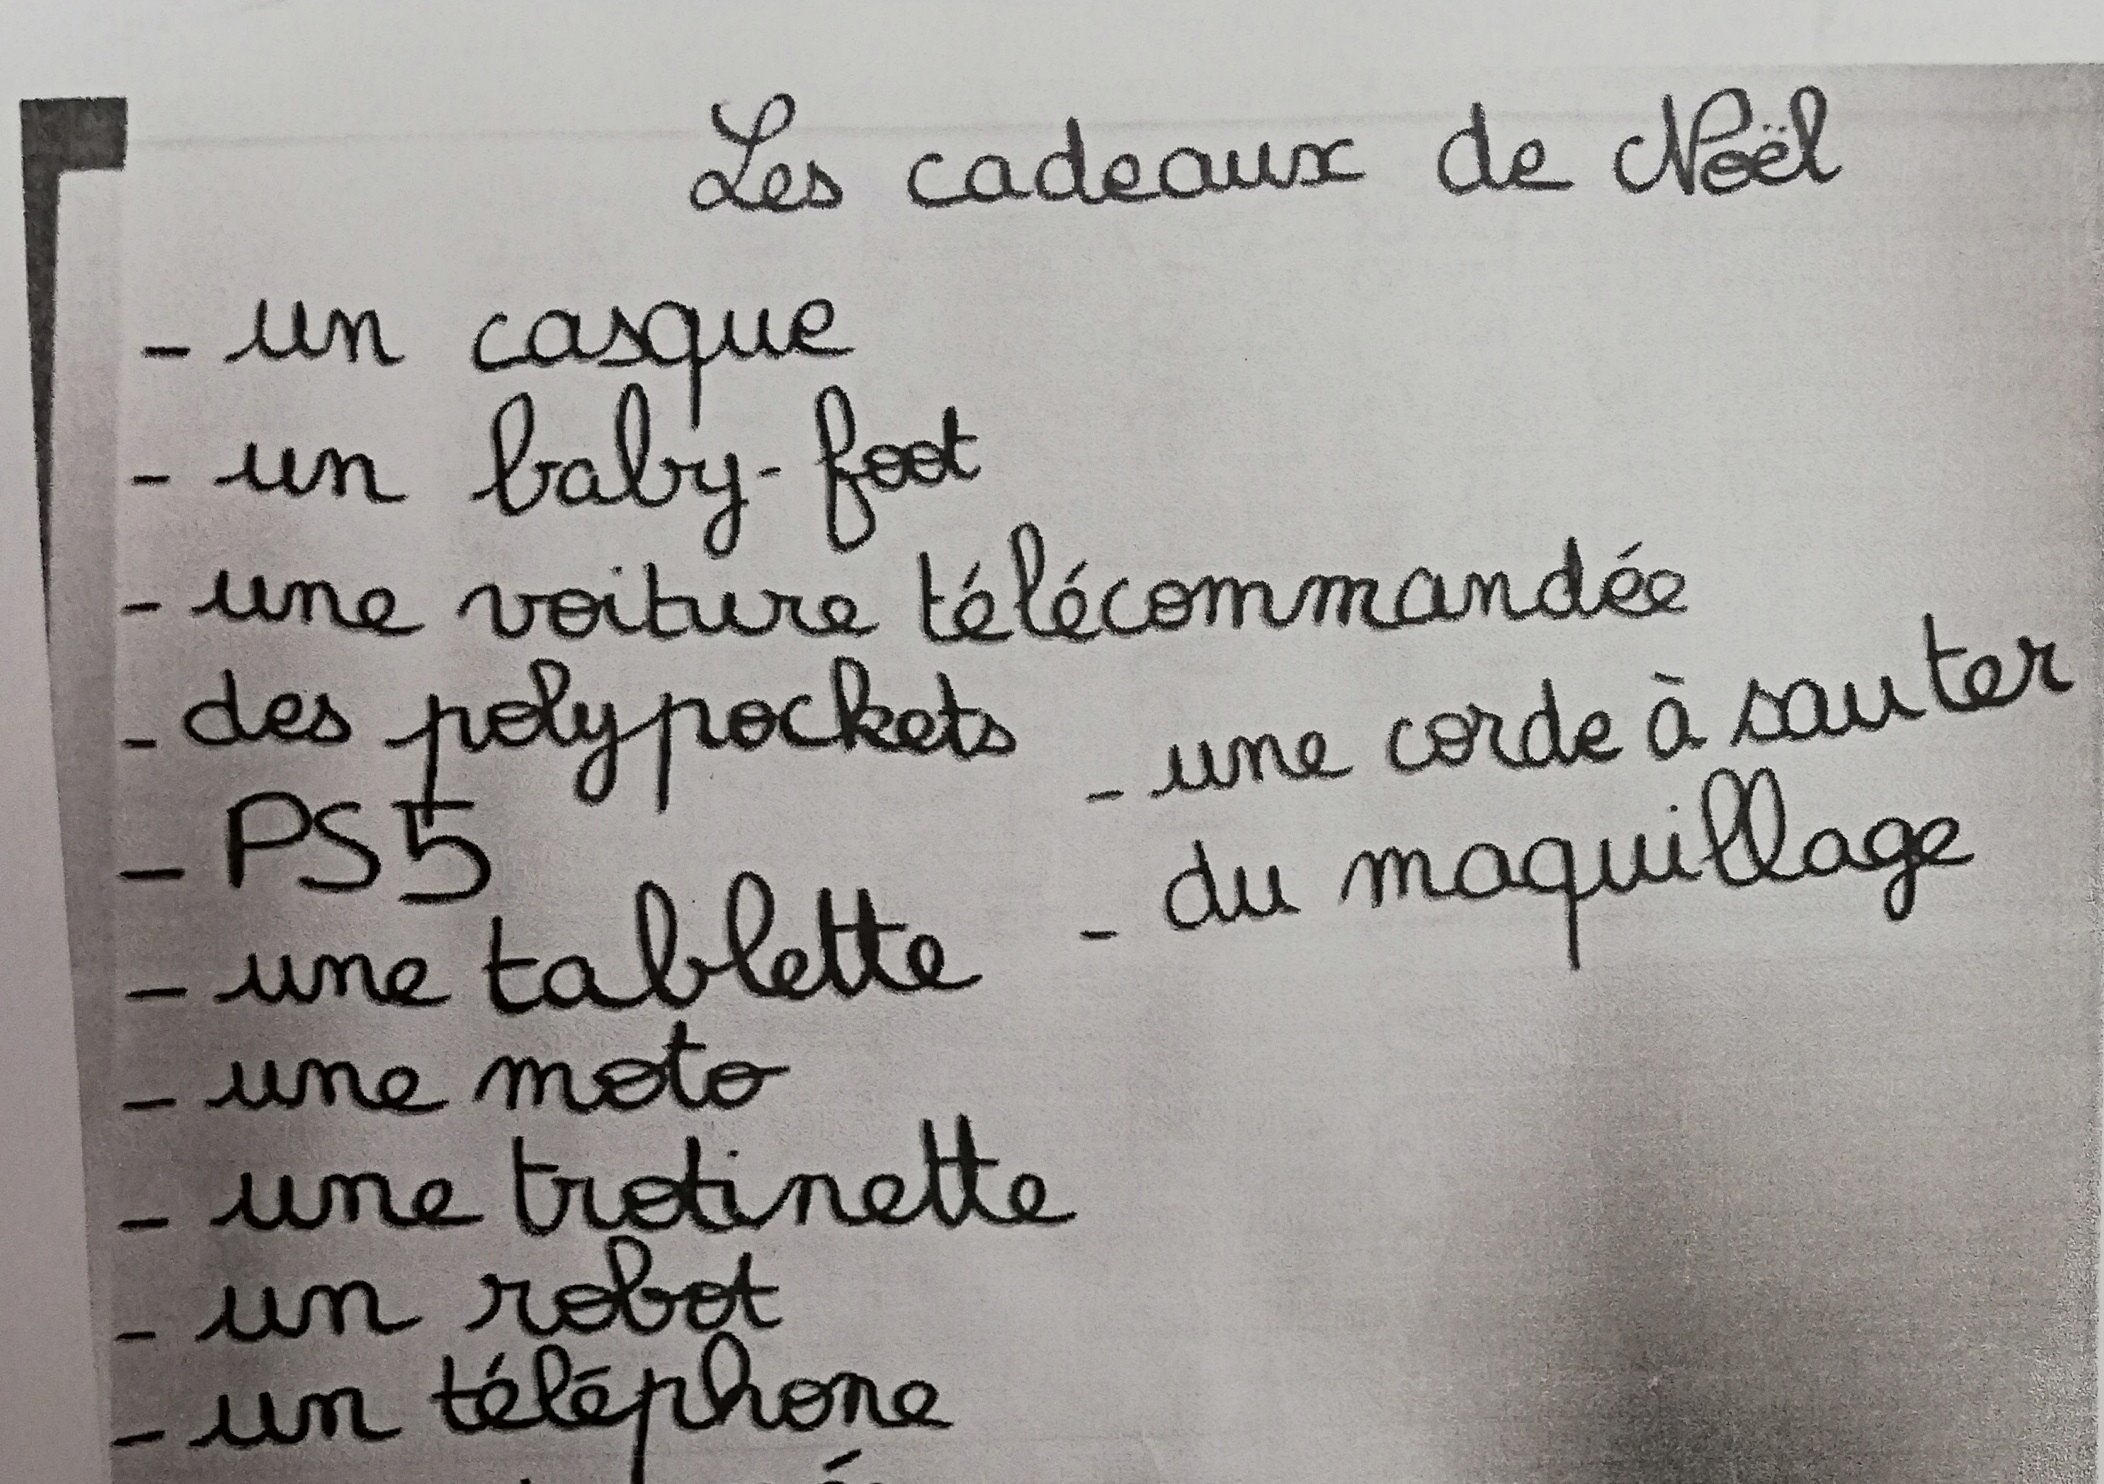 Les cadeaux de Noël
- un casque
- un baby-foot
- une voiture télécommandée
- des polypockets
- PS5
- une tablette
- une moto
- une trotinette
- un robot
- un téléphone
- une corde à sauter
- du maquillage